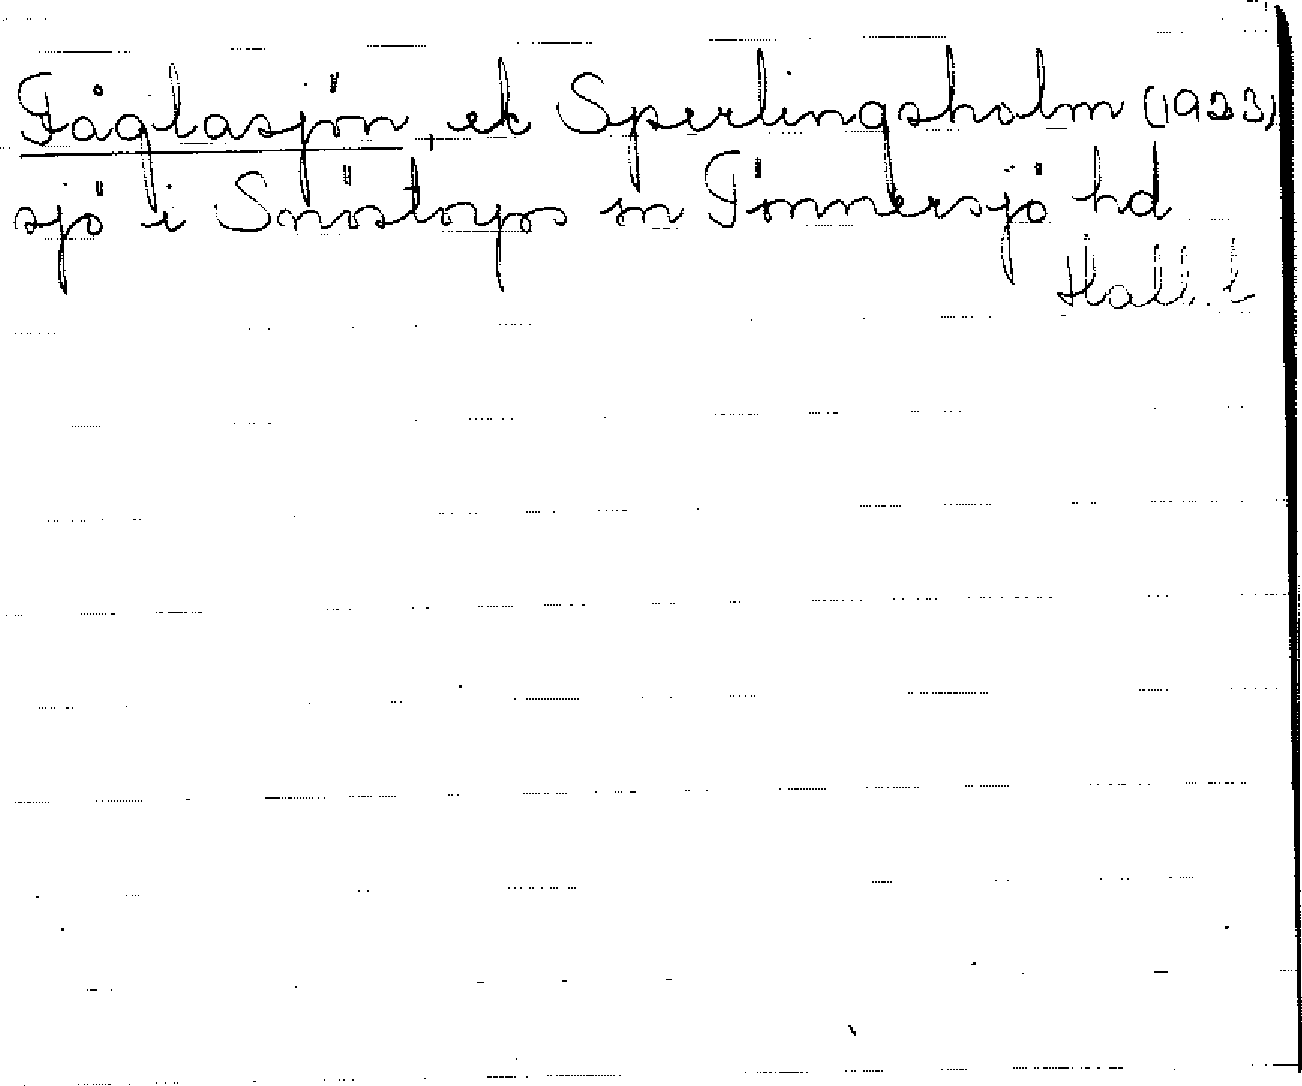 Fåglasjön, ek Sperlingsholm (1923)
sjö i Snöstorps sn Tönnersjö hd
Hall. l